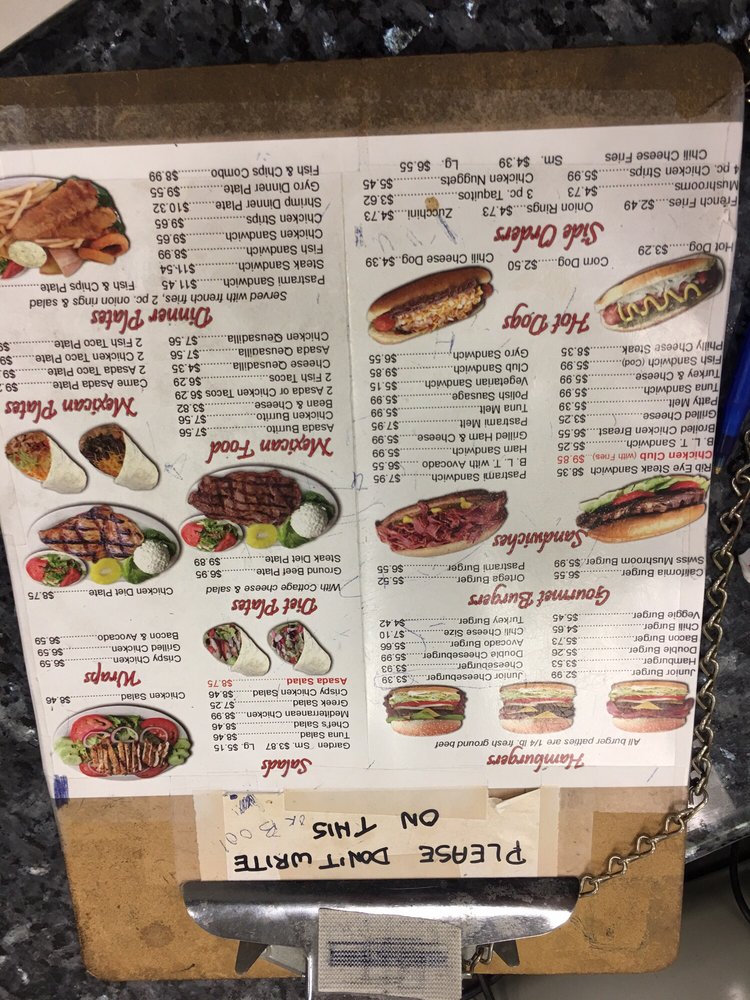 PLEASE DON'T WRITE
ON THIS
OR BOO!
Hamburgers
All burger patties are 1/4 lb. fresh ground beef
Junior Burger $2.99
Hamburger $3.53
Double Burger $5.26
Bacon Burger $5.73
Chili Burger $4.65
Veggie Burger $5.45
Junior Cheeseburger $3.39
Cheeseburger $3.93
Double Cheeseburger $5.99
Avocado Burger $5.66
Chili Cheese Size $7.10
Turkey Burger $4.42
Gourmet Burgers
California Burger $6.55
Swiss Mushroom Burger $5.99
Ortega Burger $7.52
Pastrami Burger $6.55
Sandwiches
Rib Eye Steak Sandwich $8.35
Chicken Club (with Fries) $9.85
B. L. T. Sandwich $5.25
Broiled Chicken Breast $6.55
Grilled Cheese $3.25
Patty Melt $5.39
Tuna Sandwich $5.99
Turkey & Cheese $5.99
Fish Sandwich (Cod) $5.99
Philly Cheese Steak $8.35
Pastrami Sandwich $7.95
B. L. T. with Avocado $6.55
Ham Sandwich $5.99
Grilled Ham & Cheese $6.99
Pastrami Melt $7.95
Tuna Melt $5.99
Polish Sausage $5.99
Vegetarian Sandwich $5.15
Club Sandwich $9.85
Gyro Sandwich $6.55
Hot Dogs
Hot Dog $3.29
Corn Dog $2.50
Chili Cheese Dog $4.39
Side Orders
French Fries $2.49
Onion Rings $4.73
Zucchini $4.73
Mushrooms $4.73
3 pc. Taquitos $3.62
4 pc. Chicken Strips $5.99
Chicken Nuggets $5.45
Chili Cheese Fries Sm. $4.39 Lg. $6.55
Salads
Garden Sm $3.87 Lg. $5.15
Tuna Salad $8.46
Chef's Salad $8.46
Mediterranean Chicken $8.99
Greek Salad $7.25
Crispy Chicken Salad $8.46
Asada Salad $8.75
Chicken Salad $8.46
Wraps
Crispy Chicken $6.59
Grilled Chicken $6.59
Bacon & Avocado $6.59
Diet Plates
With Cottage cheese & salad
Ground Beef Plate $6.95
Steak Diet Plate $9.89
Chicken Diet Plate $8.75
Mexican Food
Asada Burrito $7.56
Chicken Burrito $7.56
Bean & Cheese $3.82
2 Asada or Chicken Tacos $6.29
2 Fish Tacos $6.29
Cheese Qeusadilla $4.35
Asada Qeusadilla $7.56
Chicken Qeusadilla $7.56
Mexican Plates
Carne Asada Plate
2 Asada Taco Plate
2 Chicken Taco Plate
2 Fish Taco Plate
Dinner Plates
Served with french fries, 2 pc. onion rings & salad
Pastrami Sandwich $11.45
Steak Sandwich $11.54
Fish Sandwich $8.99
Chicken Sandwich $9.65
Chicken Strips $9.65
Shrimp Dinner Plate $10.32
Gyro Dinner Plate $9.55
Fish & Chips Combo $8.99
Fish & Chips Plate